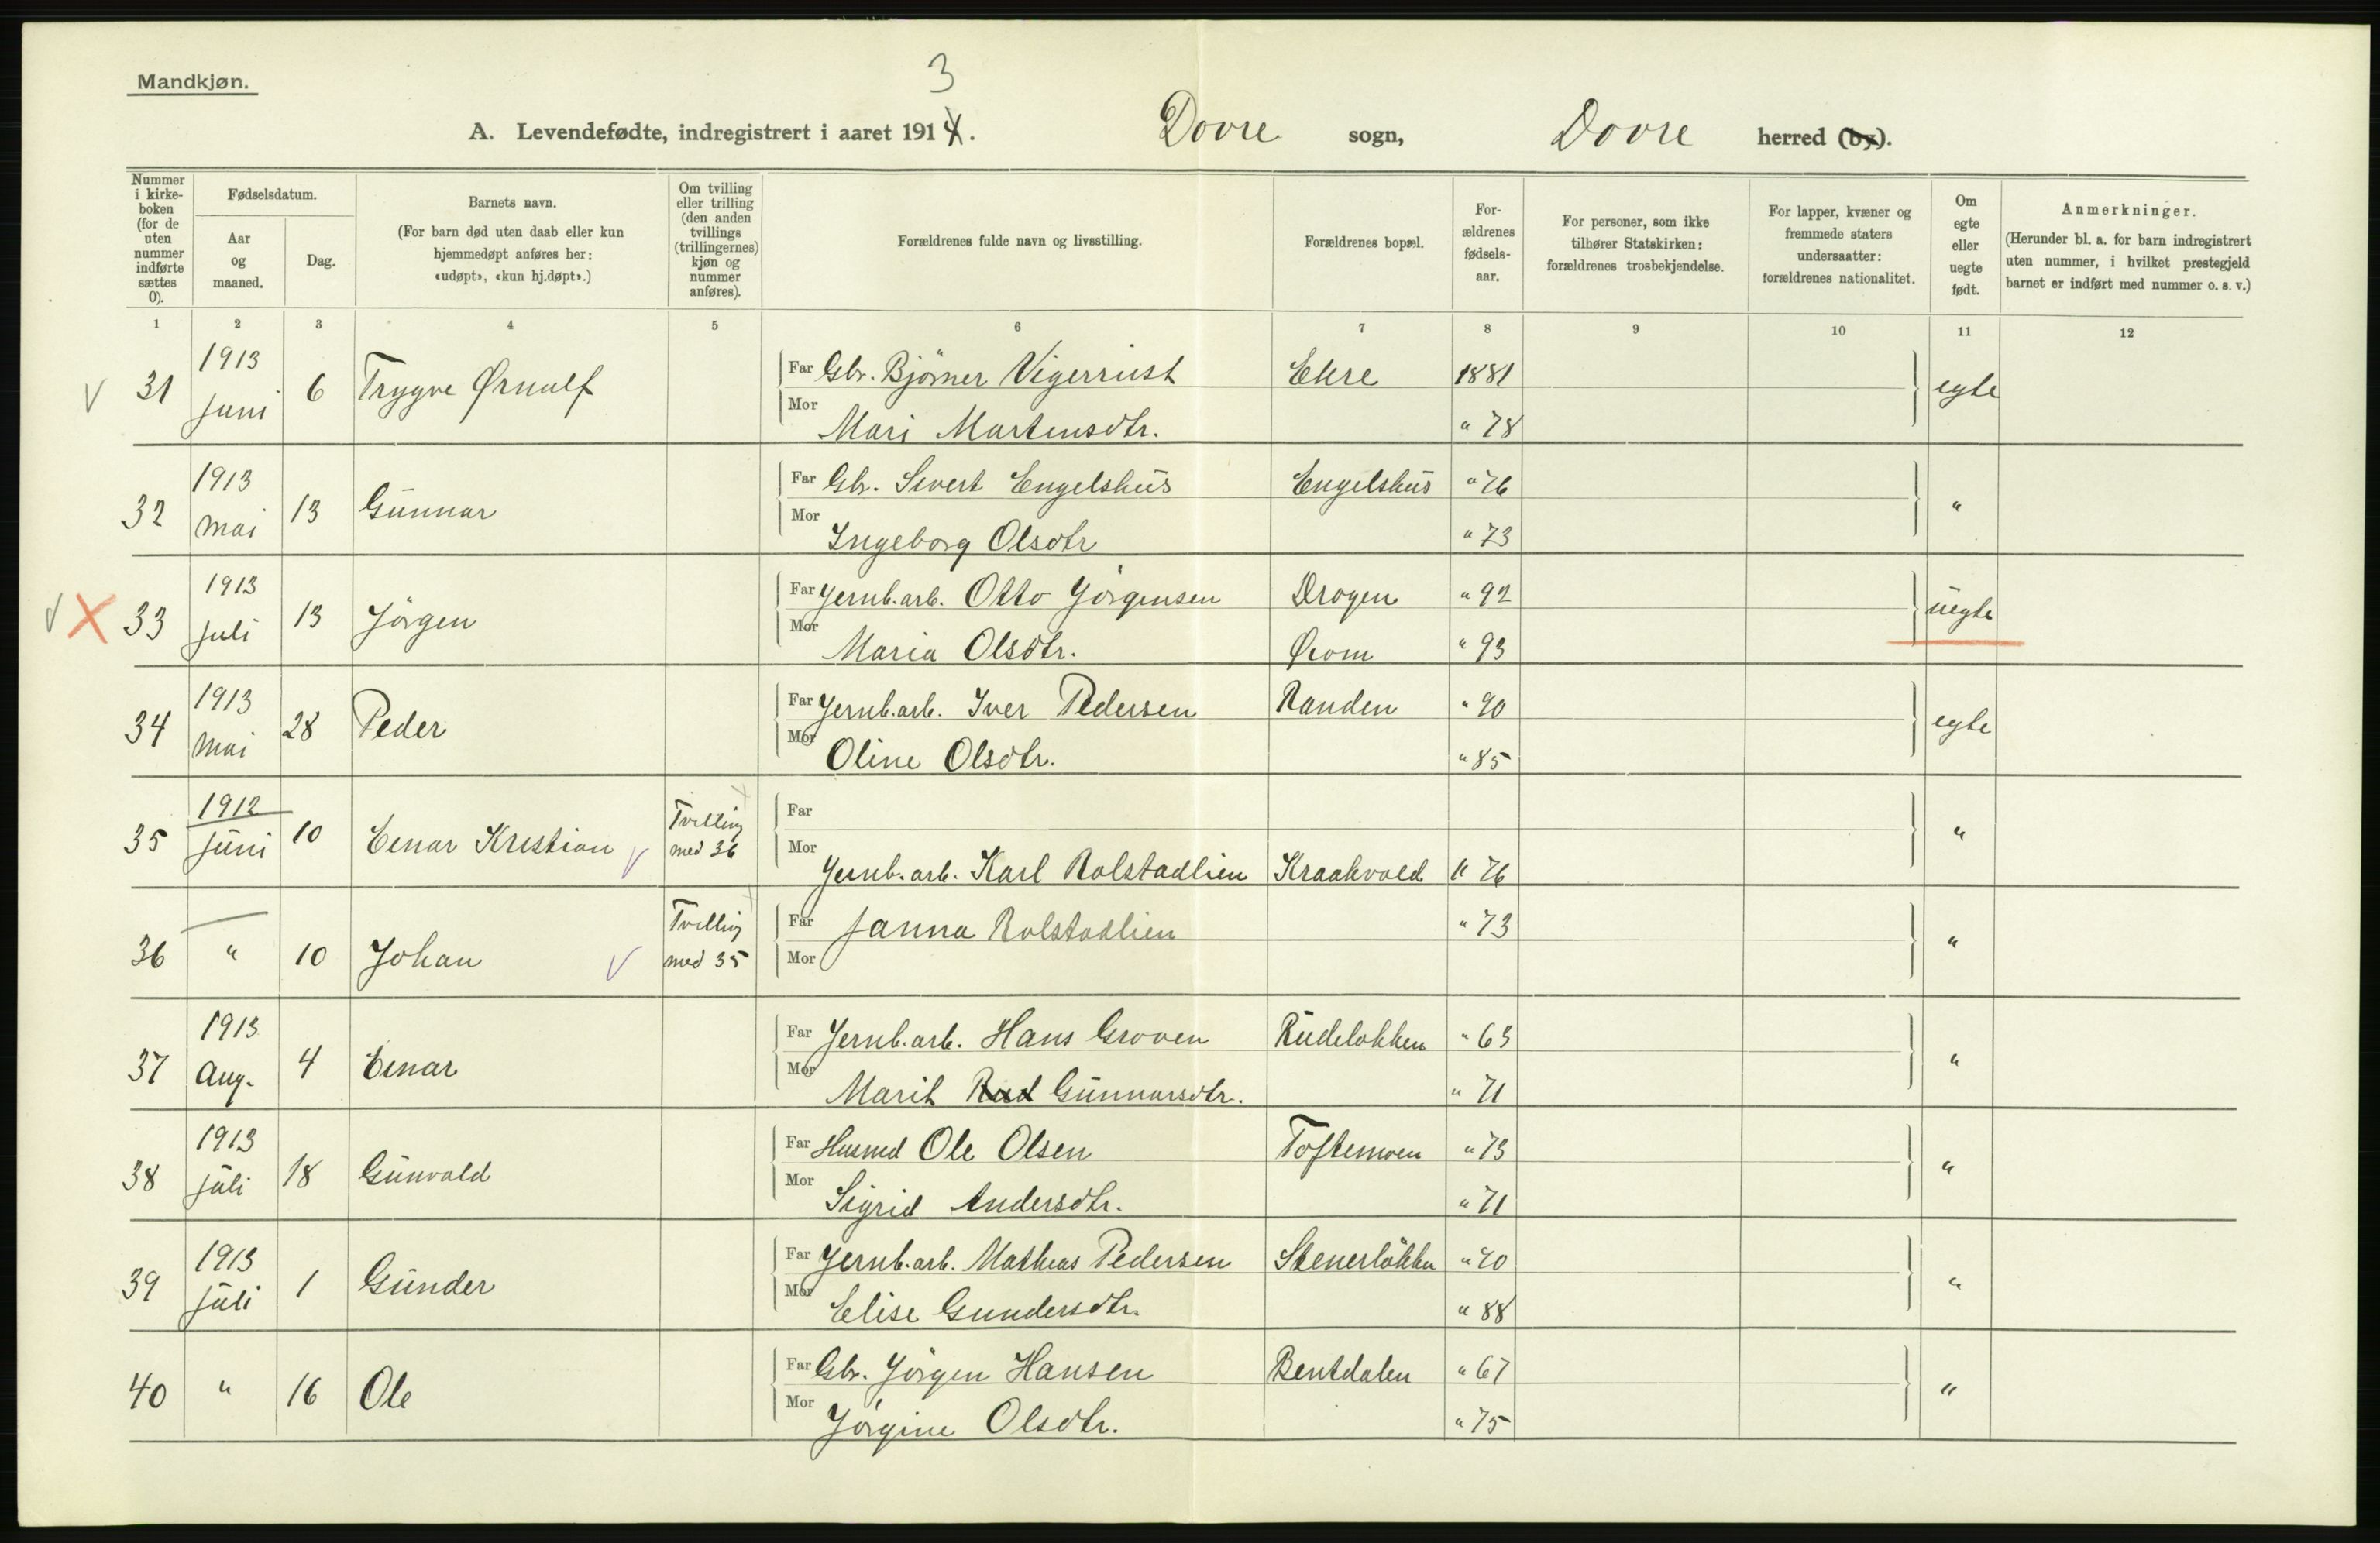 Mandkjøn.
3
A. Levendefødte, indregistrert i aaret 1914. Dovre sogn, Dovre herred (by).
Nummer i kirke-boken (for de uten nummer indførte sættes 0).
Fødselsdatum.
Aar og maaned.
Dag.
Barnets navn.
(For barn død uten daab eller kun hjemmedøpt anføres her: «udøpt», «kun hj.døpt».)
Om tvilling eller trilling (den anden tvillings (trillingernes) kjøn og nummer anføres).
Forældrenes fulde navn og livsstilling.
Forældrenes bopæl.
For-ældrenes fødsels-aar.
For personer, som ikke tilhører Statskirken: forældrenes trosbekjendelse.
For lapper, kvæner og fremmede staters undersaatter: forældrenes nationalitet.
Om egte eller uegte født.
Anmerkninger.
(Herunder bl. a. for barn indregistrert uten nummer, i hvilket prestegjeld barnet er indført med nummer o. s. v.)
1 2 3 4 5 6 7 8 9 10 11 12
31 1913 juni 6 Trygve Ørnulf Far Gbr. Bjørner Vigerust Ekre 1881 egte
Mor Mari Martensdtr. " 78
32 1913 mai 13 Gunnar Far Gbr. Sivert Engelshus Engelshus " 76 "
Mor Ingeborg Olsdtr " 73
V X 33 1913 juli 13 Jörgen Far Jernb.arb. Otto Jörgensen Drogen " 92 uegte
Mor Maria Olsdtr. " 93
34 1913 Mai 28 Peder Far Jernb.arb. Iver Pedersen Randen " 90 egte
Mor Oline Olsdtr. " 85
35 1912 juni 10 Einar Kristian Tvilling med 36 Far "
Mor Jernb.arb. Karl Rolstadlien Kraakvold " 76
36 " 10 Johan Tvilling med 35 Far Janna Rolstadlien " 73 "
Mor
37 1913 Aug. 4 Einar Far Jernb.arb. Hans Groven Rudelokken " 63 "
Mor Marit Gunnarsdtr. " 71
38 1913 juli 18 Gunvald Far Husmd Ole Olsen Toftemoen " 73 "
Mor Sigrid Andersdtr. " 71
39 1913 juli 1 Gunder Far Jernb.arb. Mathias Pedersen Stenerlökken " 90 "
Mor Elise Gundersdtr. " 88
40 " 16 Ole Far Gbr. Jörgen Hansen Bentdalen " 67 "
Mor Jörgine Olsdtr. " 75